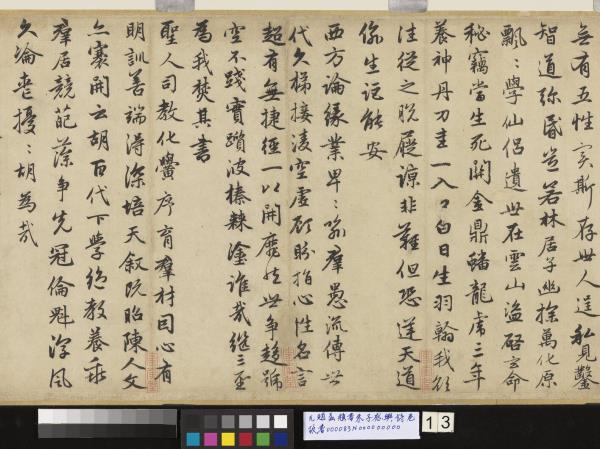 無有五性實斯存世人逞私見鑿
智道彌昏豈若林居子幽探萬化原
飄〻學仙侶遺世在雲山盜啓玄命
秘竊當生死關金鼎蟠龍虎三年
養神丹刀圭一入口白日生羽翰我欲
往從之脫屣諒非難但恐逆天道
偷生詎能安
西方論緣業卑〻喻羣愚流傳世
代久梯接凌空虛顧盻指心性名言
超有無捷徑一以開靡然世爭趨號
空不踐實躓彼榛棘塗誰哉繼三聖
為我焚其書
聖人司教化黌序育羣材因心有
明訓善端得深培天叙既昭陳人文
亦褰開云胡百代下學絕教養乖
羣居競葩藻爭先冠倫魁淳風
久淪喪擾〻胡為哉
元趙孟頫書朱子感興詩卷
故書000083N000000000
13